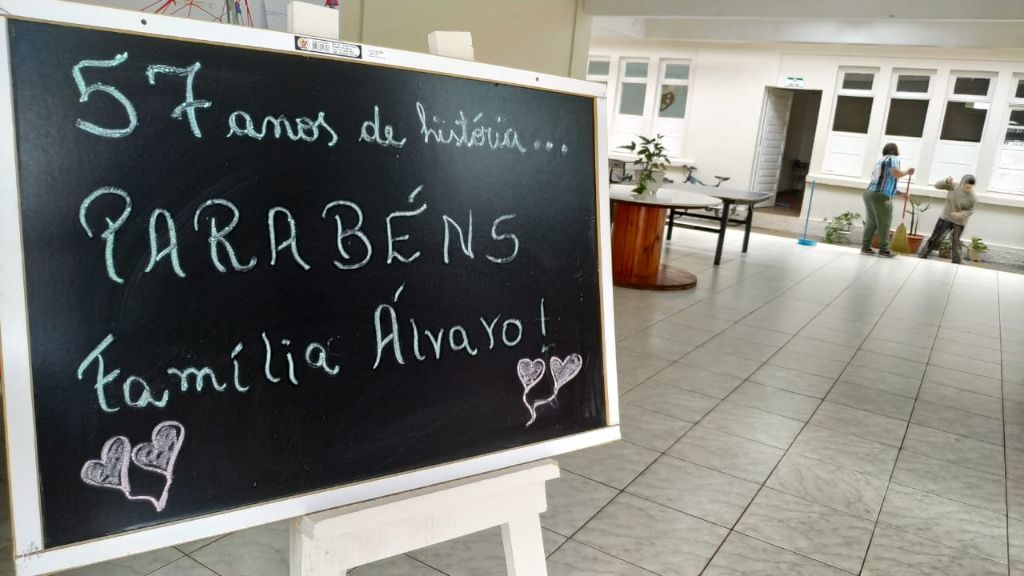 57 anos de história...
PARABÉNS
Família Álvaro!